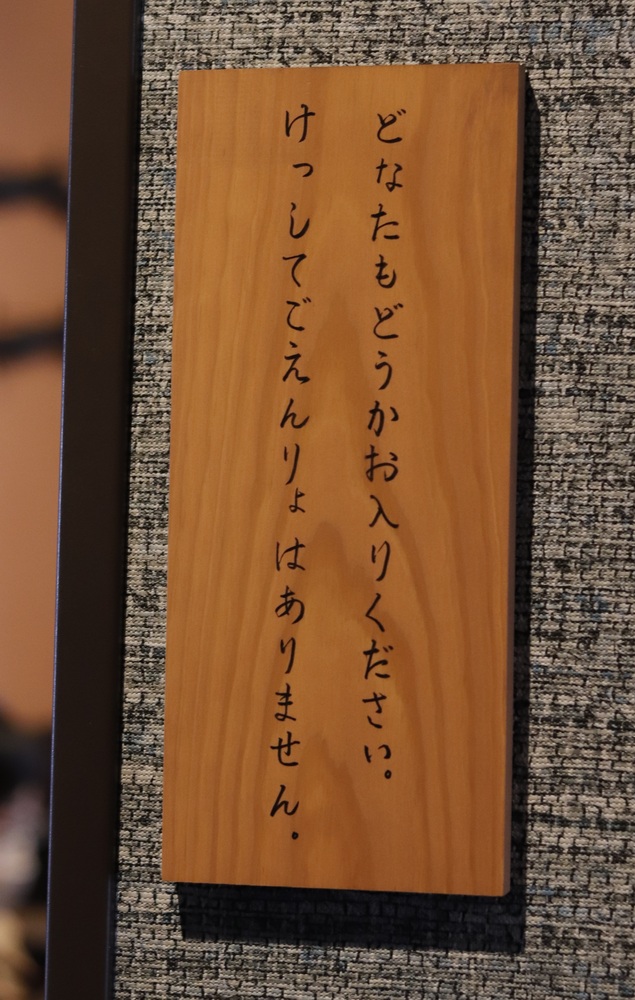 どなたもどうかお入りください。
けっしてごえんりょはありません。